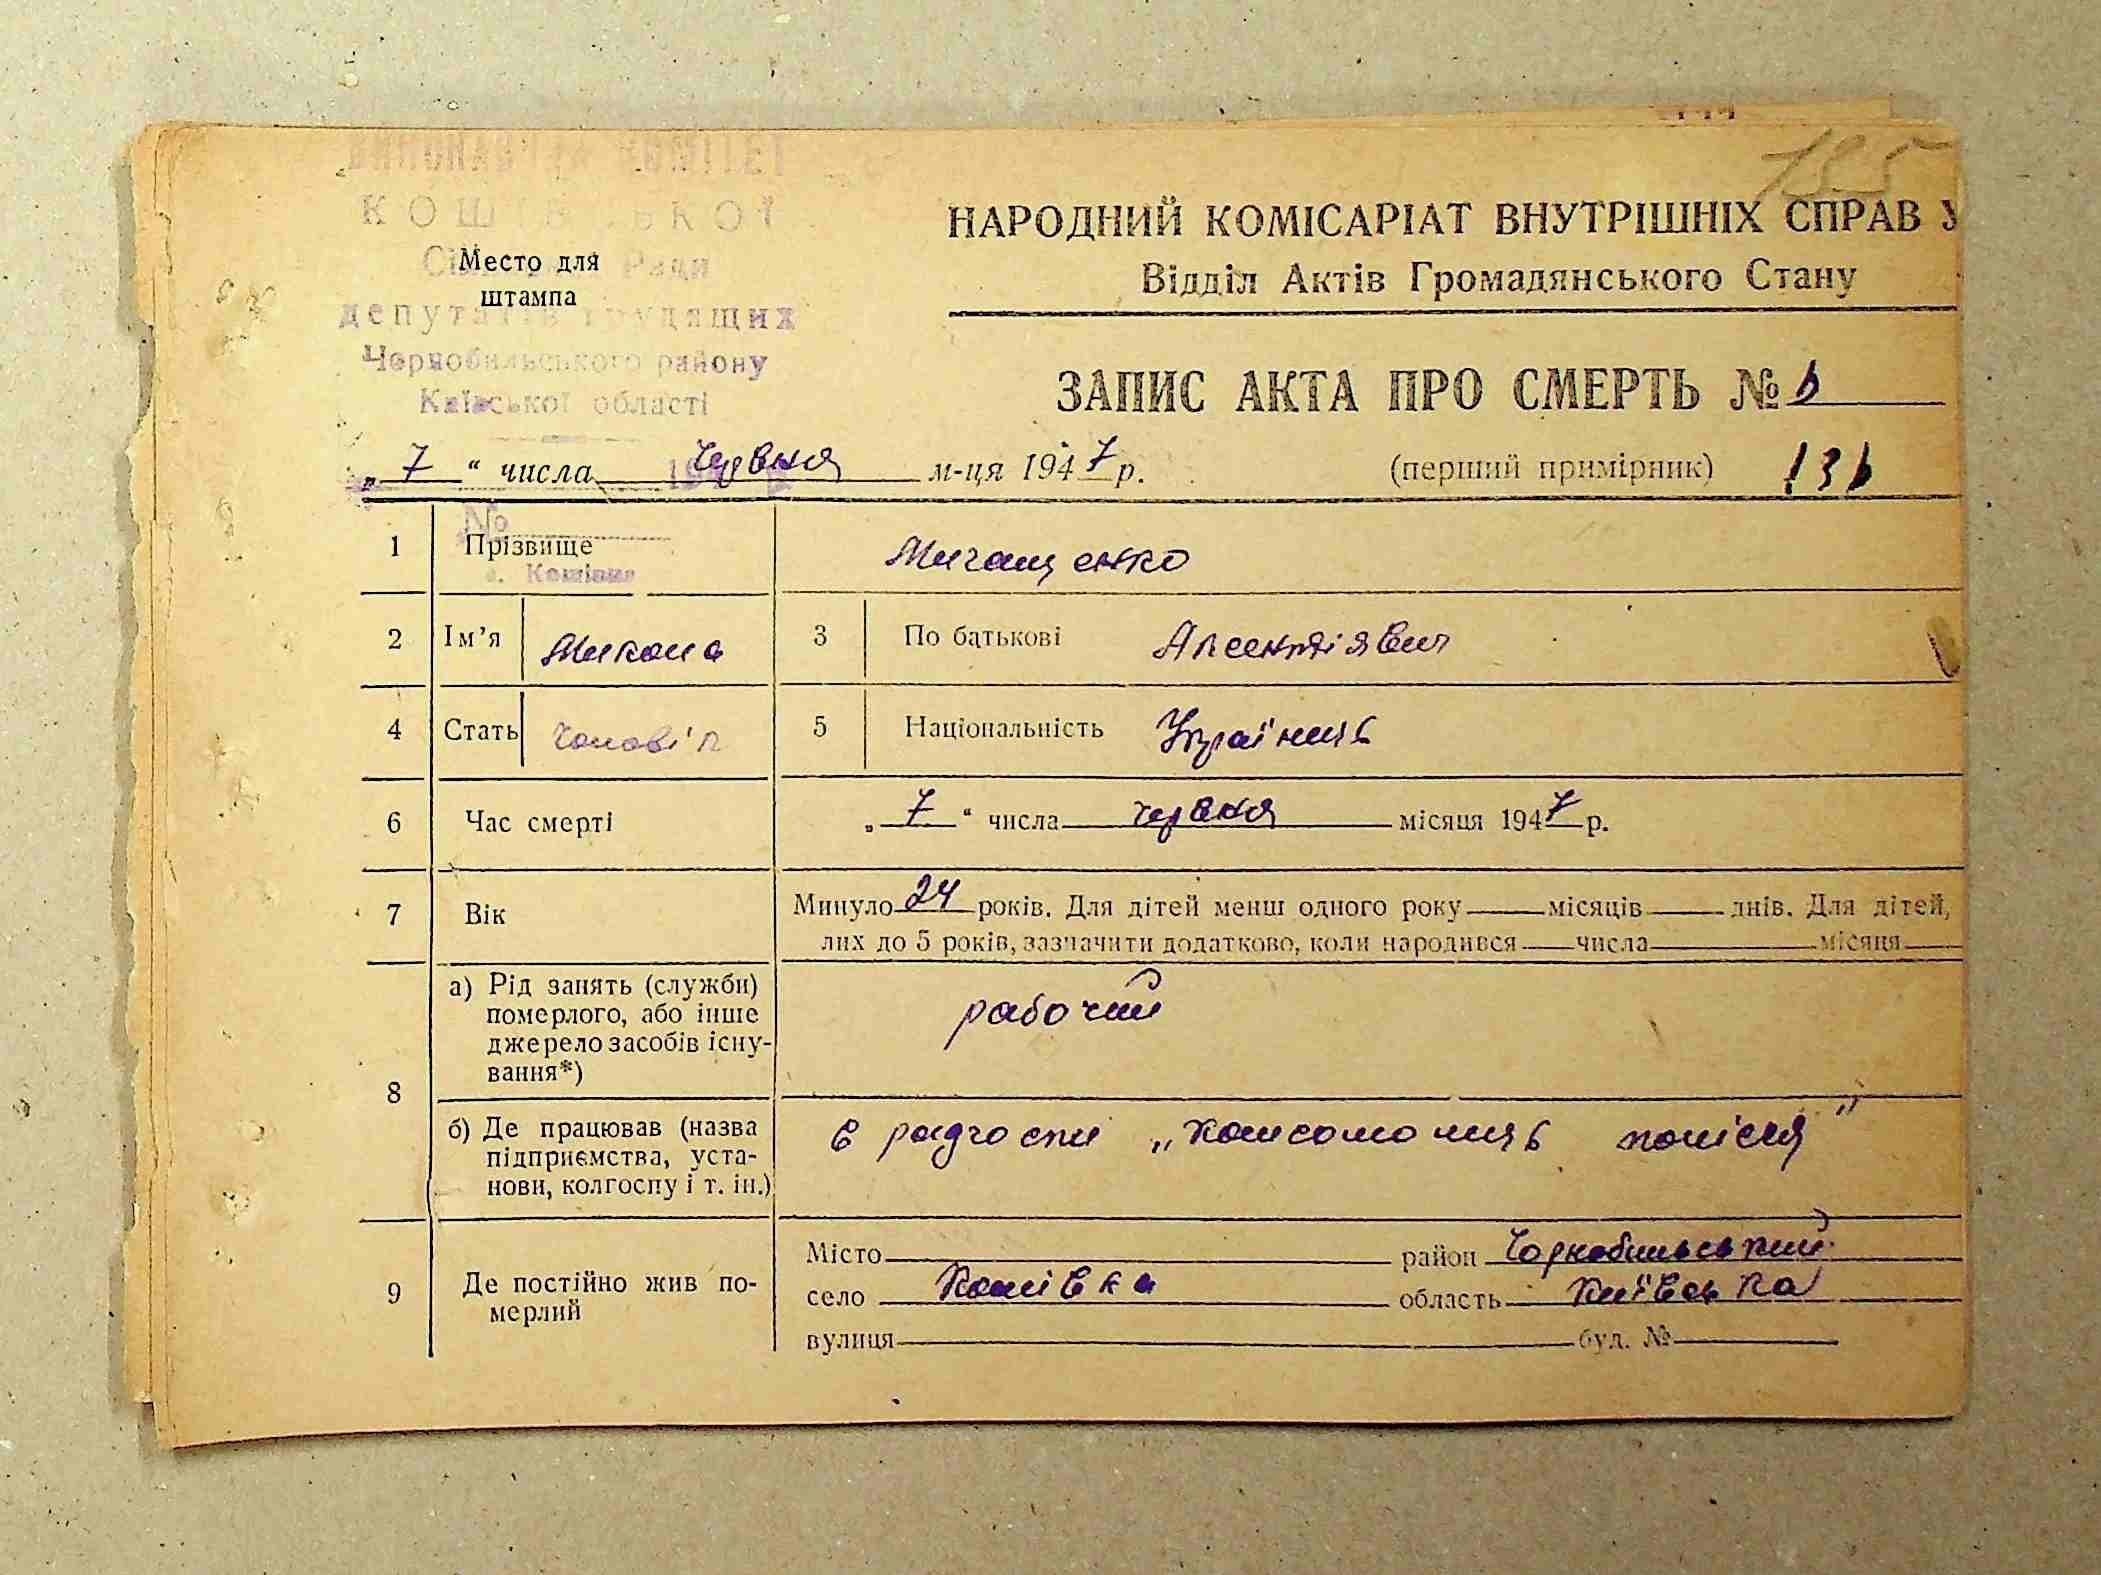 135
ВИКОНАВЧИЙ КОМІТЕТ
КОШІВСЬКОЇ
Сільської Ради
депутатів трудящих
Чорнобильського району
Київської області
Место для
штампа
НАРОДНИЙ КОМІСАРІАТ ВНУТРІШНІХ СПРАВ У
Відділ Актів Громадянського Стану
ЗАПИС АКТА ПРО СМЕРТЬ № 6
„ 7 “ числа червня м-ця 1947 р.
(перший примірник) 136
№
с. Кошівка
1 Прізвище
2 Ім’я Микола 3 По батькові
4 Стать чоловіч 5 Національність Українець
6 Час смерті „ 7 “ числа червня місяця 1947 р.
7 Вік Минуло 24 років. Для дітей менш одного року місяців днів. Для дітей,
лих до 5 років, зазначити додатково, коли народився числа місяця
8 а) Рід занять (служби)
померлого, або інше
джерело засобів існу-
вання*)
рабочий
б) Де працював (назва
підприємства, уста-
нови, колгоспу і т. ін.)
в радгоспі „комсомолиць полісся”
9 Де постійно жив по-
мерлий
Місто район Чорнобильський
село Кошівка область Київська
вулиця буд. №